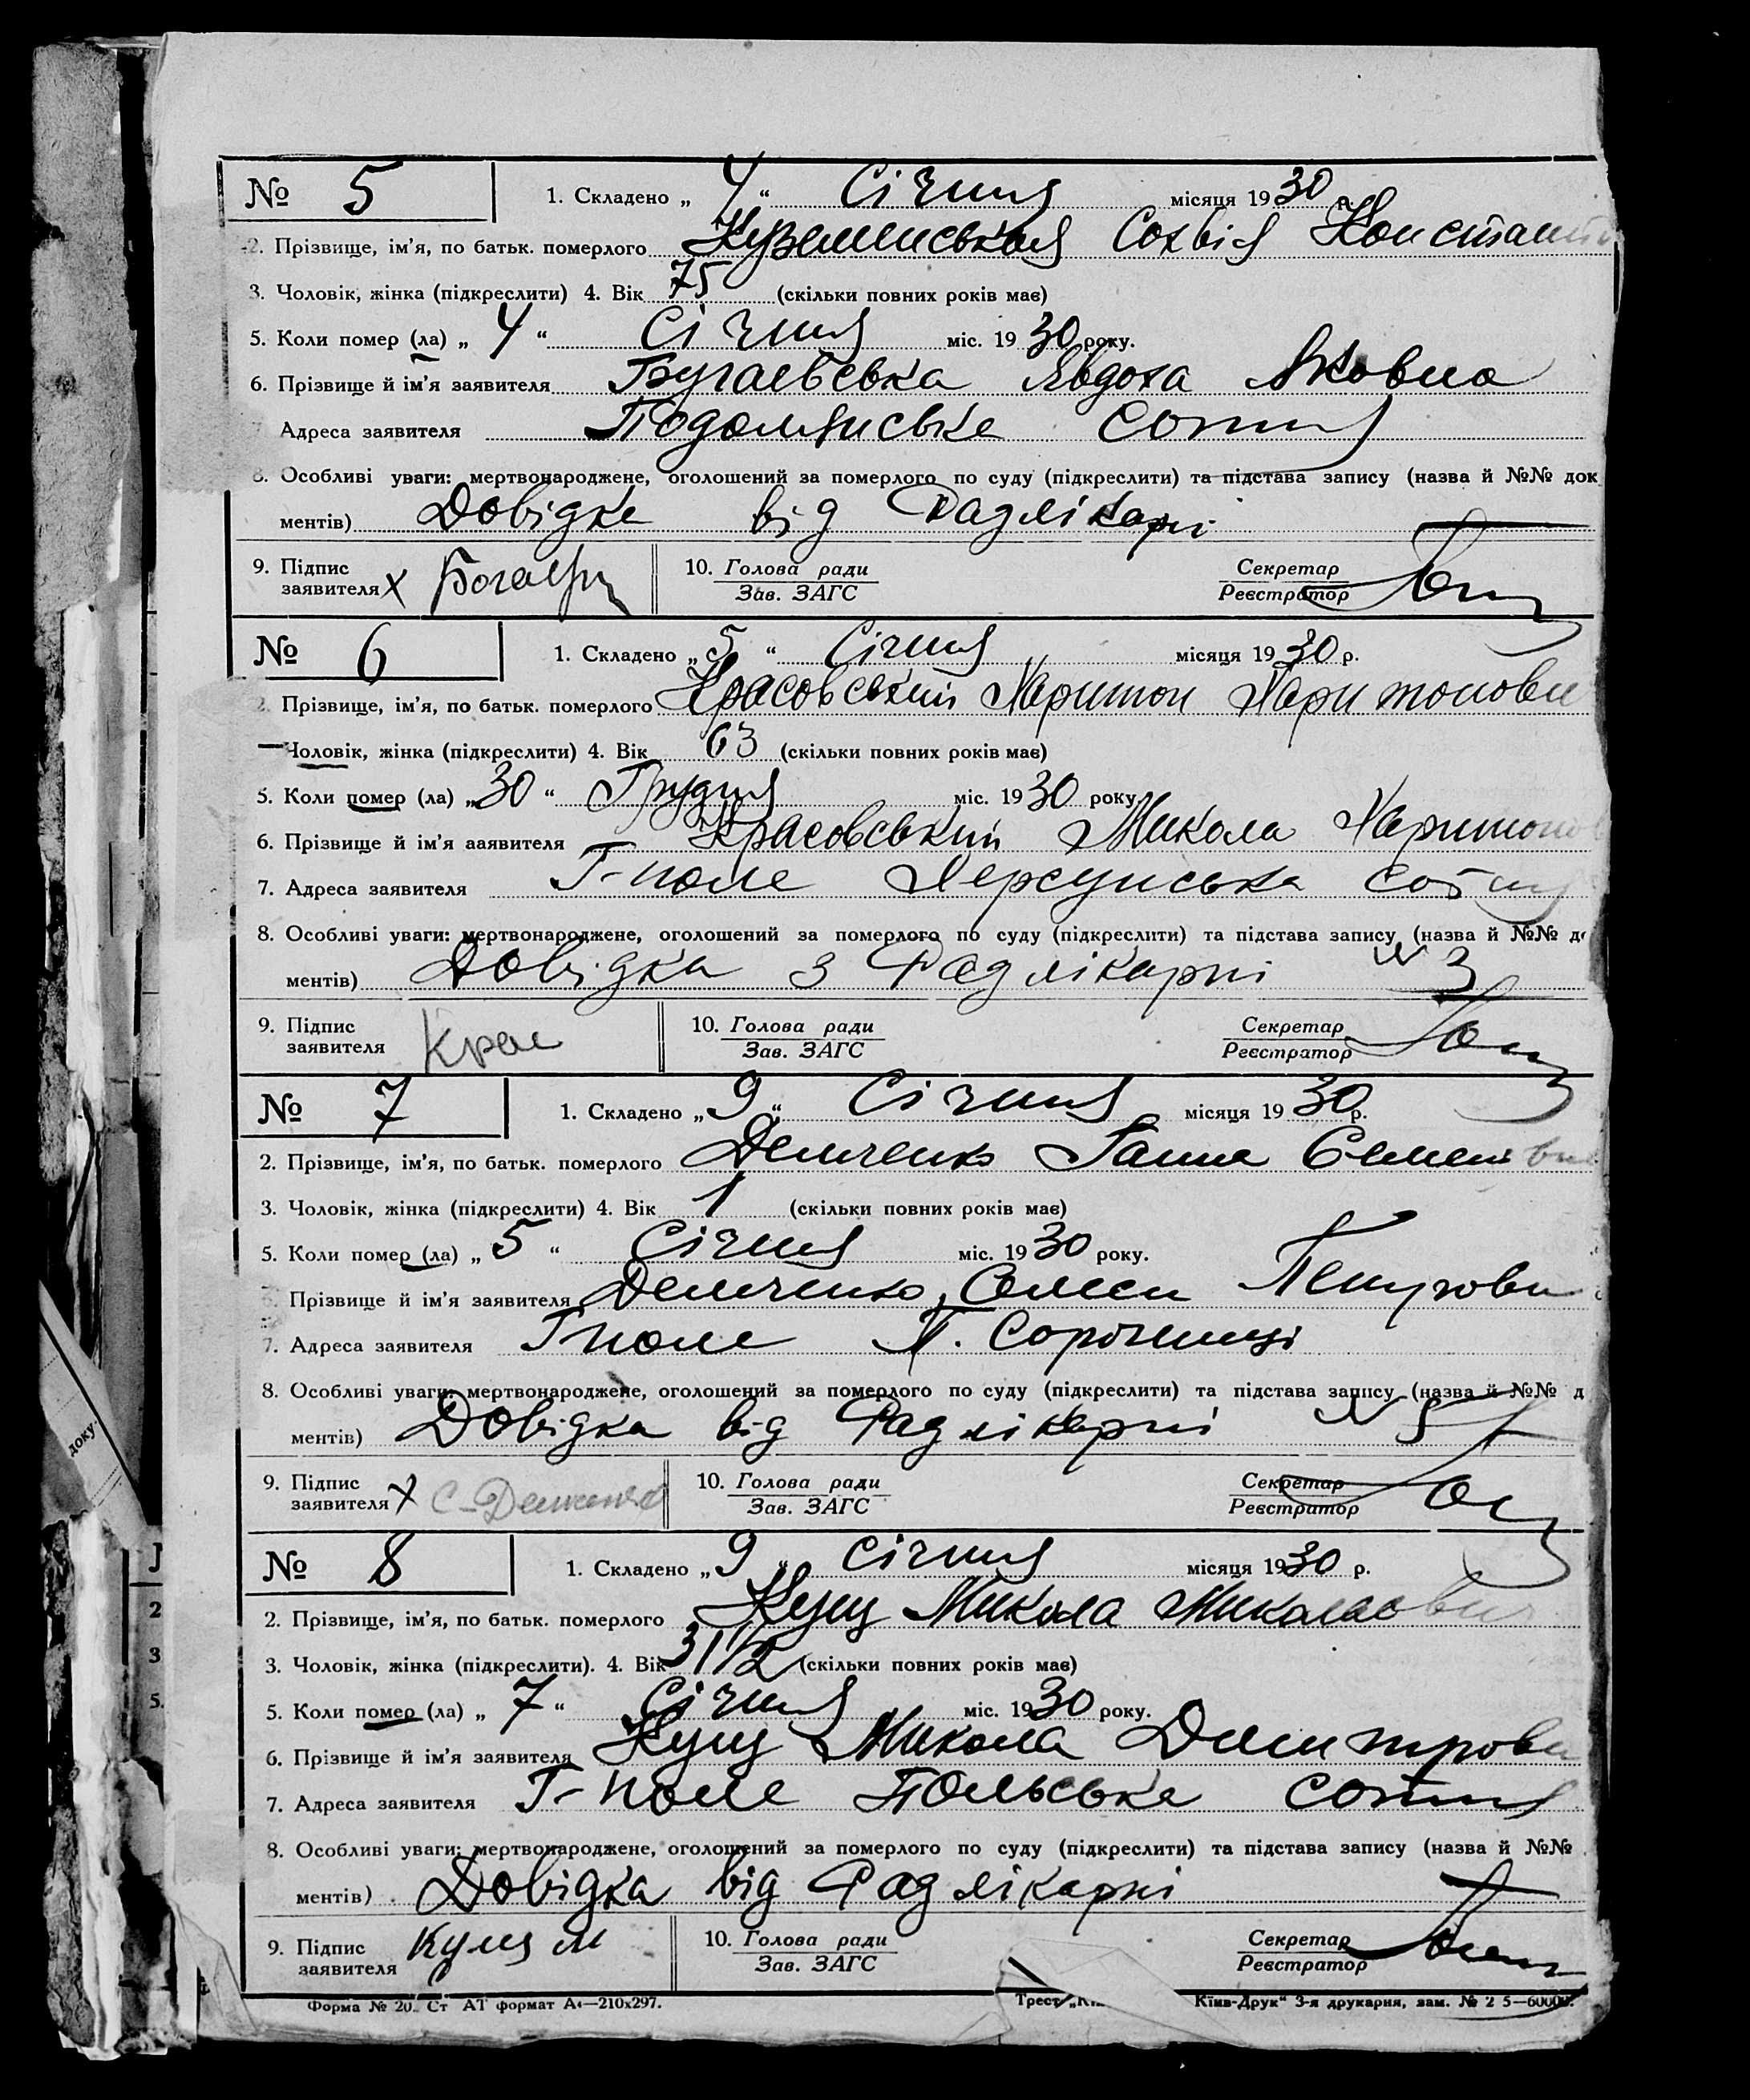 № 5 1. Складено „ 4 “ Січня місяця 1930 р.
2. Прізвище, ім'я, по батьк. померлого Куземинськая Сохвія Констант
3. Чоловік, жінка (підкреслити) 4. Вік 75 (скільки повних років має)
5. Коли помер (ла) „ 4 “ Січня міс. 19 30 року.
6. Прізвище й ім'я заявителя Бугаевська Явдоха Яковна
Адреса заявителя Подолянська Сотня
8. Особливі уваги: мертвонароджене, оголошений за померлого по суду (підкреслити) та підстава запису (назва й №№ док
ментів) Довідка від Радлікарні
9. Підпис заявителя х
10. Голова ради Зав. ЗАГС
Секретар Реєстратор
№ 6 1. Складено „ 5 “ Січня місяця 19 30 р.
2. Прізвище, ім'я, по батьк. померлого Красовський Харитон Харитонови
Чоловік, жінка (підкреслити) 4. Вік 63 (скільки повних років має)
5. Коли помер (ла) „ 30 “ Грудня міс. 19 30 року
6. Прізвище й ім'я заявителя Красовський Микола Харитоно
7. Адреса заявителя Г-поле Херсунська сотня
8. Особливі уваги: мертвонароджене, оголошений за померлого по суду (підкреслити) та підстава запису (назва й №№ д
ментів) Довідка з Радлікарні № 3
9. Підпис заявителя Крас
10. Голова ради Зав. ЗАГС
Секретар Реєстратор
№ 7 1. Складено „ 9 “ Січня місяця 19 30 р.
2. Прізвище, ім'я, по батьк. померлого Демченко Ганна Семенівна
3. Чоловік, жінка (підкреслити) 4. Вік 1 (скільки повних років має)
5. Коли помер (ла) „ 5 “ Січня міс. 19 30 року.
Прізвище й ім'я заявителя Демченко Семен Петрови
7. Адреса заявителя Гполе П. Сорочинці
8. Особливі уваги: мертвонароджене, оголошений за померлого по суду (підкреслити) та підстава запису (назва й №№ д
ментів) Довідка від Радлікарні № 5
9. Підпис заявителя х С-Демченко
10. Голова ради Зав. ЗАГС
Секретар Реєстратор
№ 8 1. Складено „ 9 “ Січня місяця 19 30 р.
2. Прізвище, ім'я, по батьк. померлого Кущ Микола Миколаевич
3. Чоловік, жінка (підкреслити). 4. Вік 3 1/2 (скільки повних років має)
5. Коли помер (ла) „ 7 “ Січня міс. 19 30 року.
6. Прізвище й ім'я заявителя Кущ Микола Дмитрови
7. Адреса заявителя Г-поле Польська сотня
8. Особливі уваги: мертвонароджене, оголошений за померлого по суду (підкреслити) та підстава запису (назва й №№
ментів) Довідка від Радлікарні
9. Підпис заявителя Кущ М
10. Голова ради Зав. ЗАГС
Секретар Реєстратор
Форма № 20. Ст АТ формат А4—210х297. Трест „Київ-Друк“ 3-я друкарня, зам. №
доку